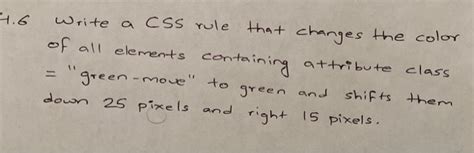 4.6 Write a CSS rule that changes the color
of all elements containing attribute class
= "green-move" to green and shifts them
down 25 pixels and right 15 pixels.